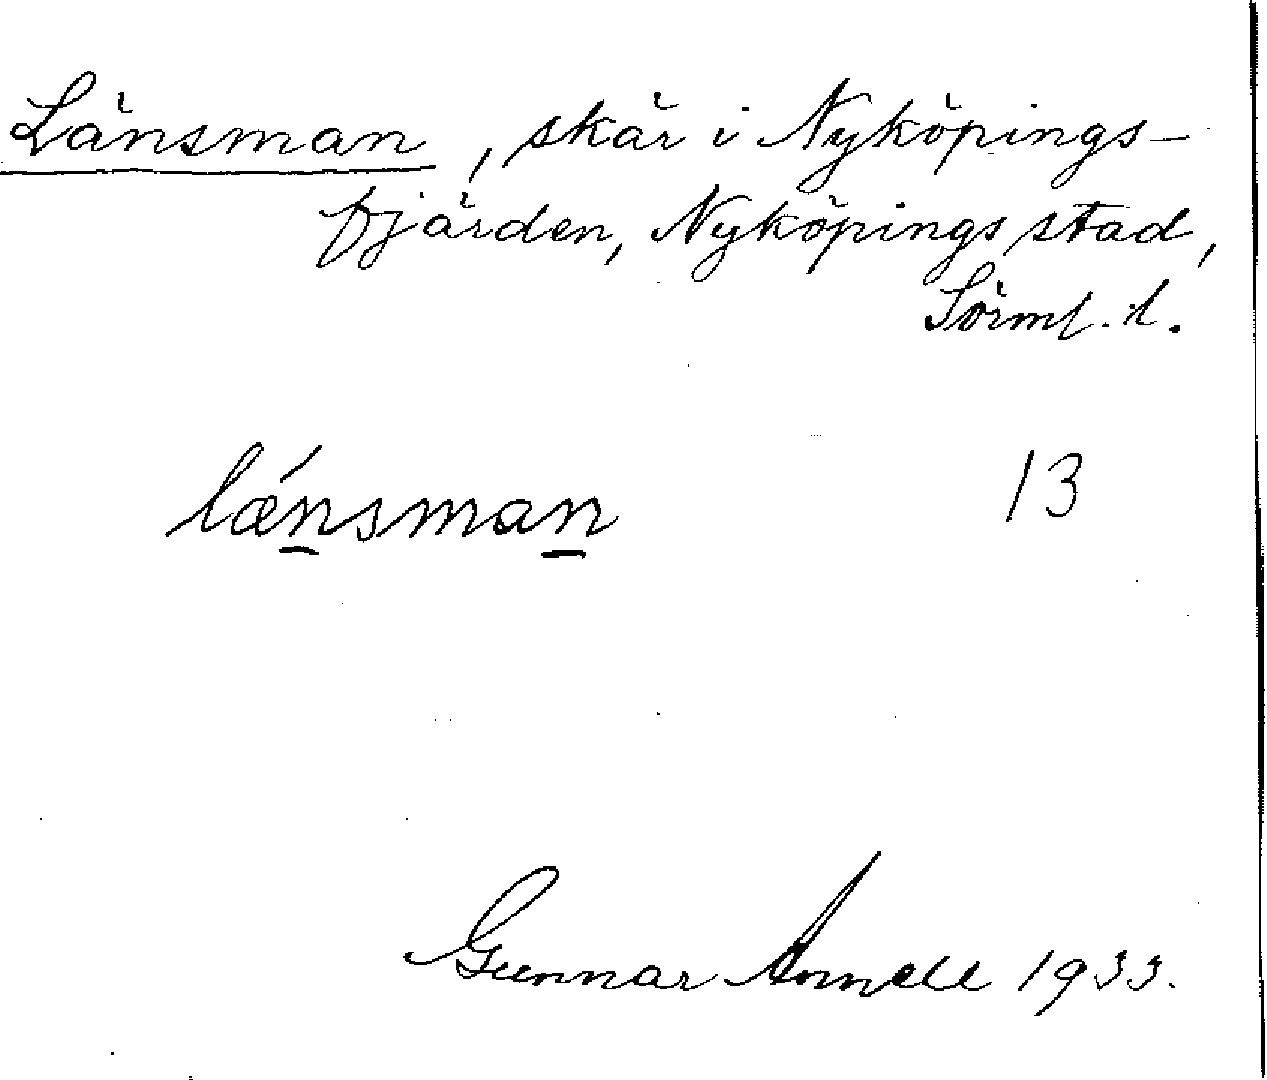 Länsman, skär i Nyköpings-
fjärden, Nyköpings stad,
Sörml. l.
lǽnsman 13
Gunnar Annell 1933.